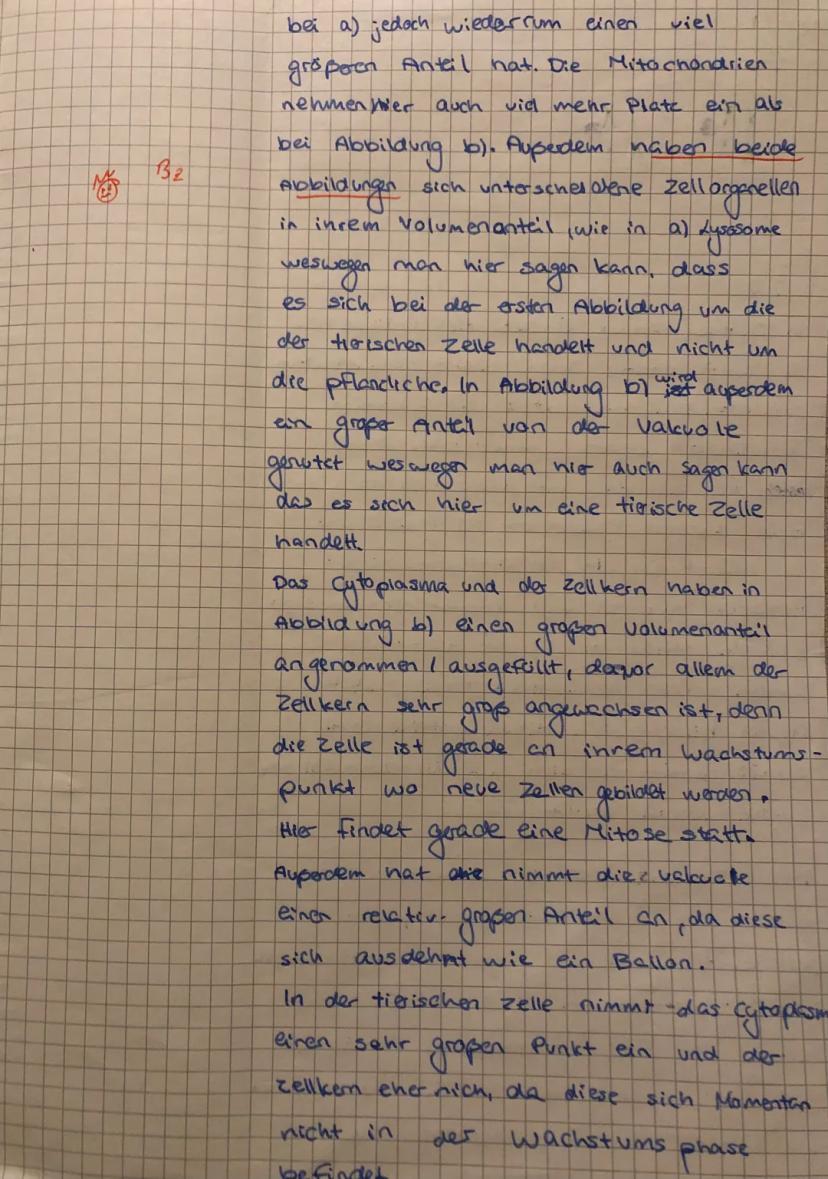 bei a) jedoch wiederrum einen viel
größeren Anteil hat. Die Mitochondrien
nehmen hier auch viel mehr Platz ein als
bei Abbildung b). Außerdem haben beide
B2
Abbildungen sich unterscheidene Zellorganellen
in ihrem Volumenanteil, wie in a) Lysosome
weswegen man hier sagen kann, dass
es sich bei der ersten Abbildung um die
der tierischen Zelle handelt und nicht um
die pflanzliche. In Abbildung b) wird außerdem
ein großer Anteil von der Vakuole
genutzt weswegen man hier auch sagen kann
das es sich hier um eine tierische Zelle
handelt.
Das Cytoplasma und der Zellkern haben in
Abbildung b) einen großen Volumenanteil
angenommen / ausgefüllt, da vor allem der
Zellkern sehr groß angewachsen ist, denn
die Zelle ist gerade an ihrem Wachstums-
punkt wo neue Zellen gebildet werden.
Hier findet gerade eine Mitose statt.
Außerdem hat nimmt die Vakuole
einen relativ großen Anteil an, da diese
sich ausdehnt wie ein Ballon.
In der tierischen Zelle nimmt das Cytoplasm
einen sehr großen Punkt ein und der
Zellkern eher nich, da diese sich Momentan
nicht in der Wachstums phase
befindet